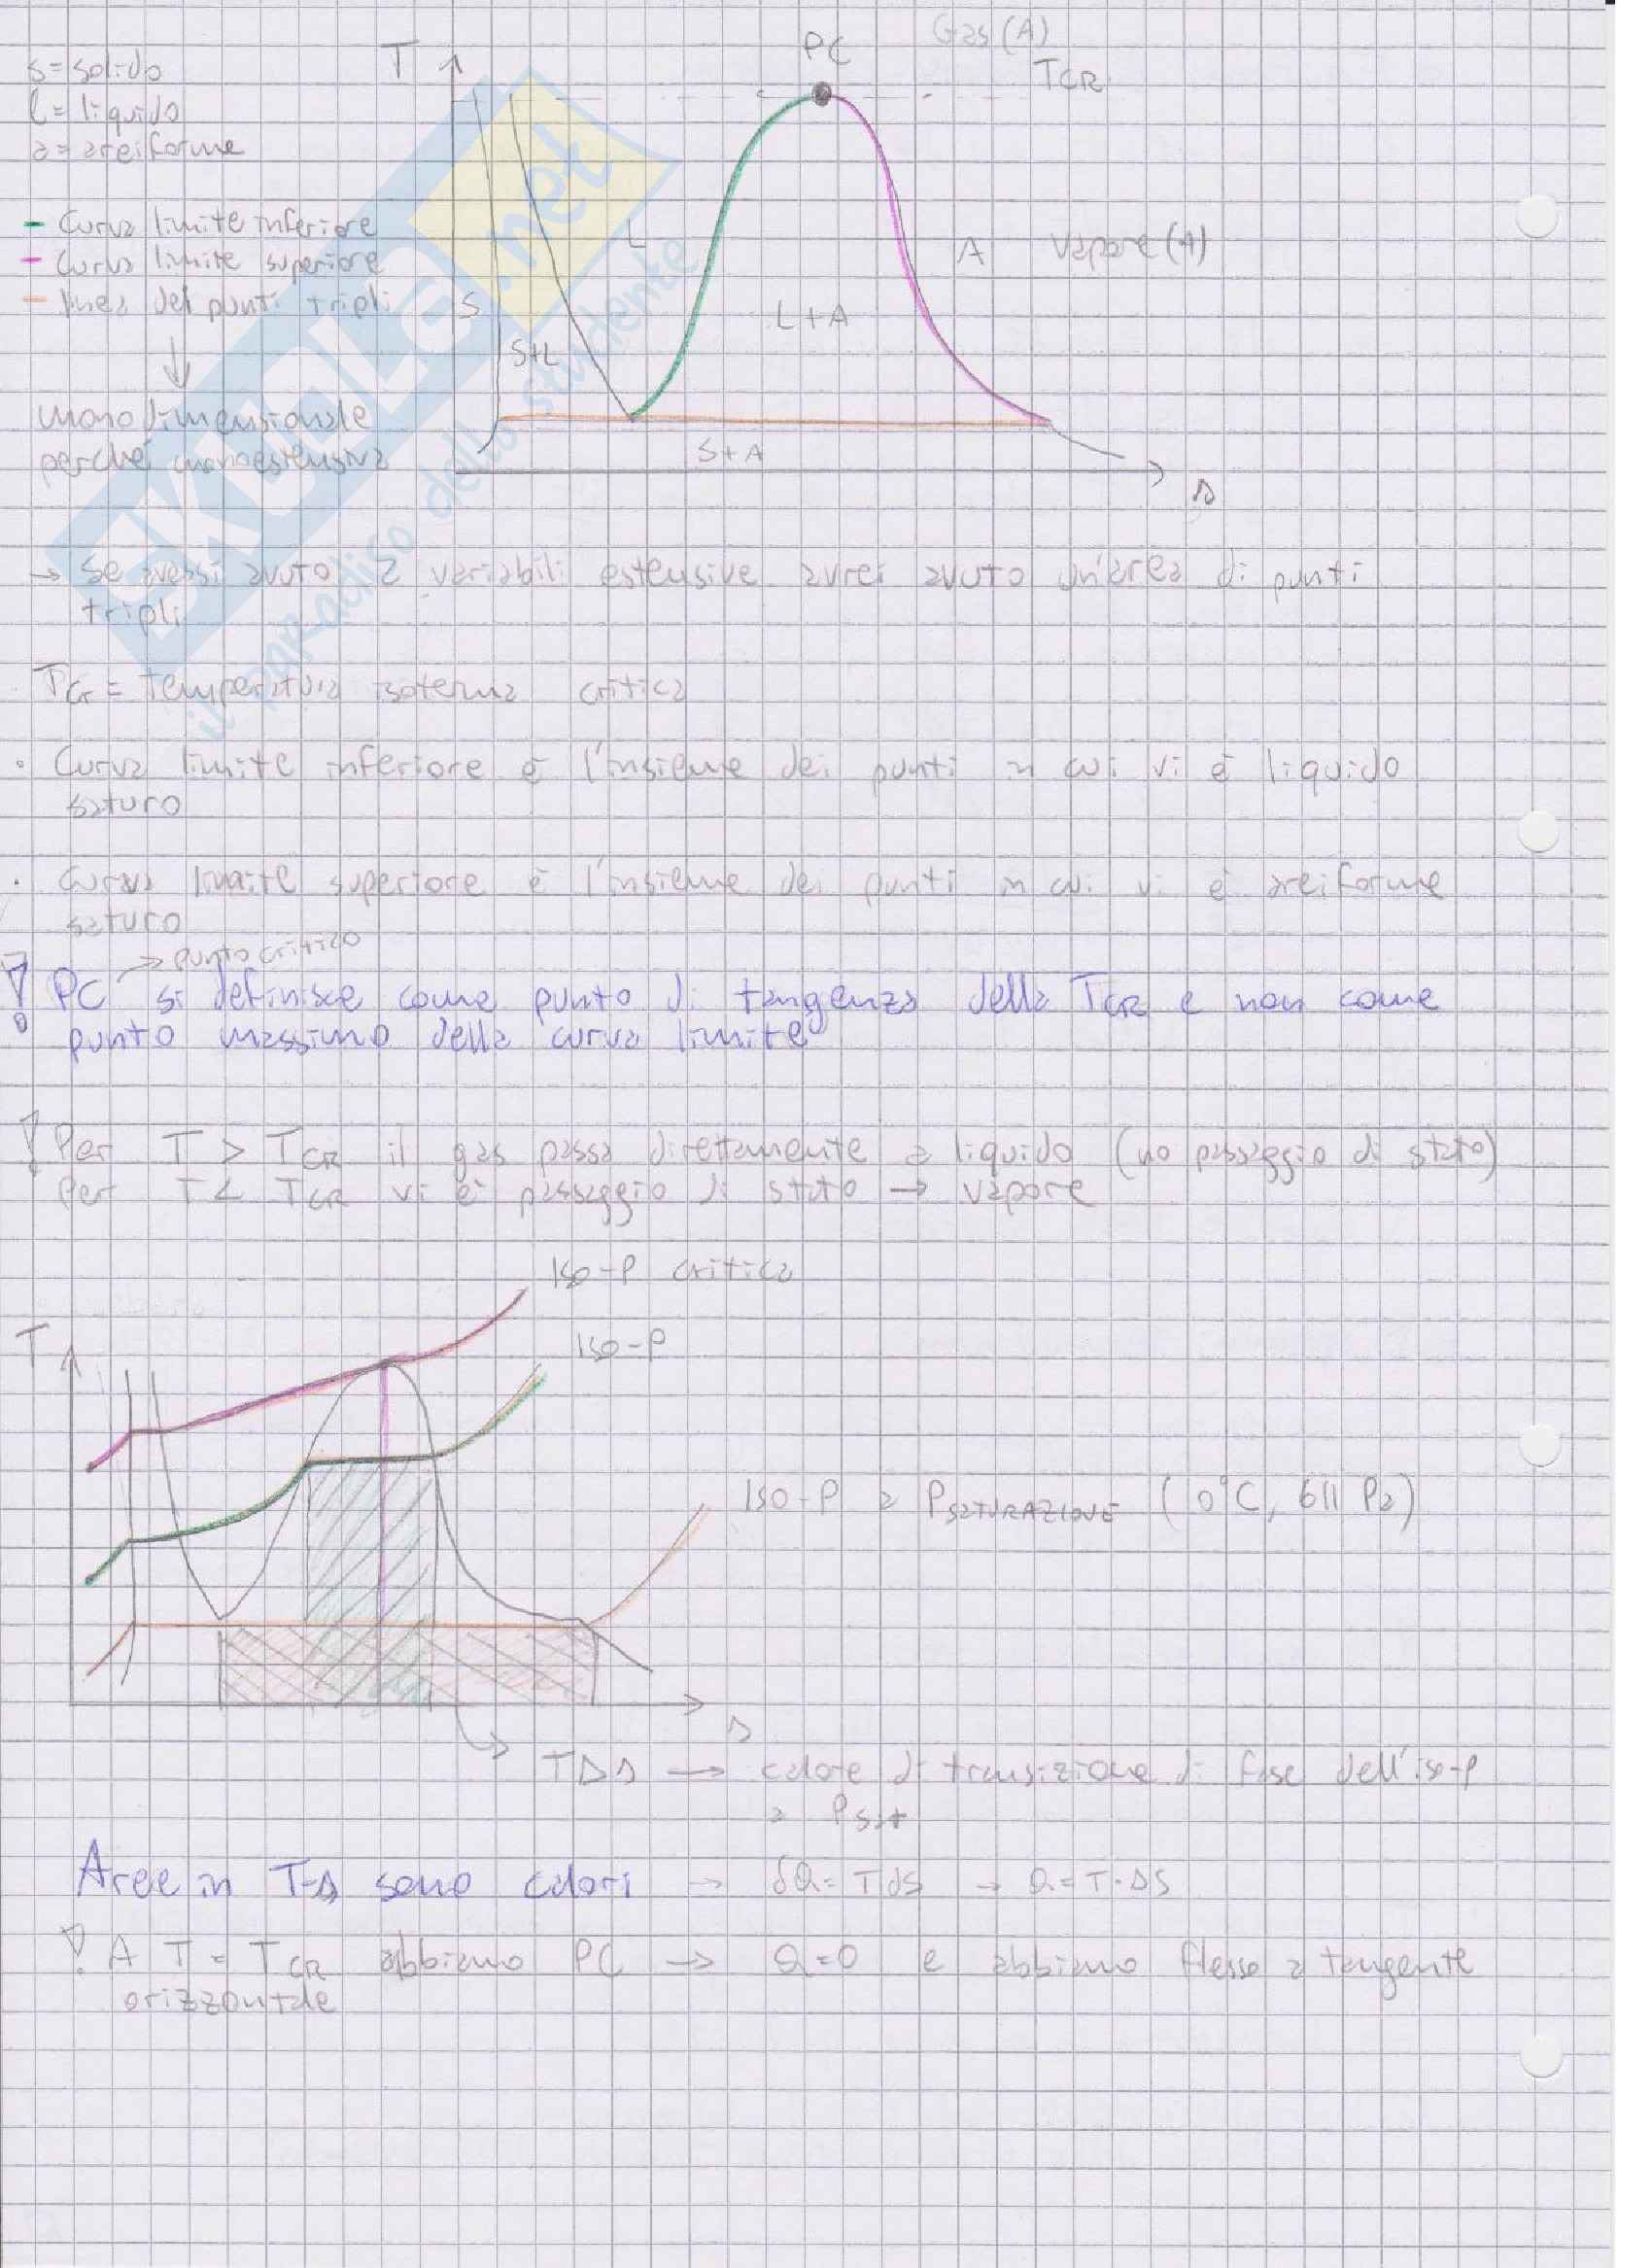 s = solido
l = liquido
a = areiforme
T
PC
Gas (A)
TCR
- Curva limite inferiore
- Curva limite superiore
- linea dei punti tripli
S
S+L
L
L+A
A
Vapore (A)
S+A
s
monodimensionale
perché monoestensiva
→ se avessi avuto 2 variabili estensive avrei avuto un'area di punti
tripli
TCr = temperatura isoterma critica
· Curva limite inferiore è l'insieme dei punti in cui vi è liquido
saturo
· Curva limite superiore è l'insieme dei punti in cui vi è areiforme
saturo
→ punto critico
! PC si definisce come punto di tangenza della TCR e non come
punto massimo della curva limite
! Per T > TCR il gas passa direttamente a liquido (no passaggio di stato)
Per T < TCR vi è passaggio di stato → vapore
Iso-P critica
T
Iso-P
Iso-P a PSATURAZIONE (0°C, 611 Pa)
s
TΔs → calore di transizione di fase dell'iso-p
a Psat
Aree in T-s sono calori → δQ = Tds → Q = T·ΔS
! A T = TCR abbiamo PC → Q=0 e abbiamo flesso a tangente
orizzontale
SKUOLA.net
il paradiso dello studente